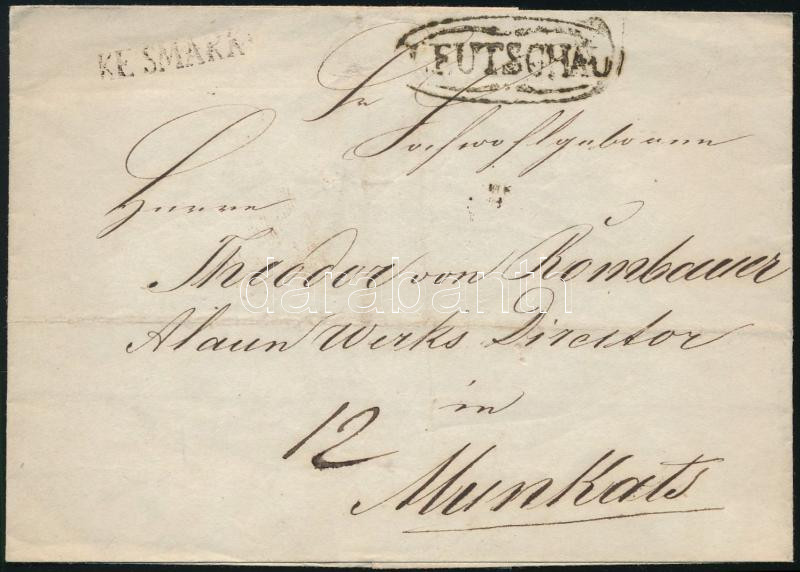 KESMARK
LEUTSCHAU
Sr
Hochwohlgeboren
Herrn
Theodor von Rombauer
Alaun Werks Director
in
12
Munkats
darabanth